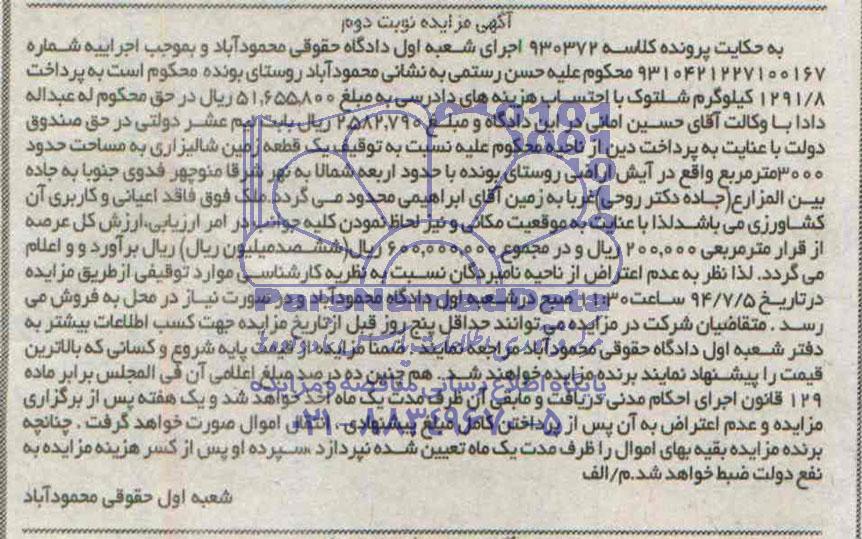 آگهی مزایده نوبت دوم
به حکایت پرونده کلاسه ۹۳۰۳۷۲ اجرای شعبه اول دادگاه حقوقی محمودآباد و بموجب اجراییه شماره
۹۳۱۰۴۲۱۲۲۷۱۰۰۱۶۷ محکوم علیه حسن رستمی به نشانی محمودآباد روستای بونده محکوم است به پرداخت
۱۲۹۱/۸ کیلوگرم شلتوک با احتساب هزینه های دادرسی به مبلغ ۵۱,۶۵۵,۸۰۰ ریال در حق محکوم له عبداله
دادا با وکالت آقای حسین امانی در این دادگاه و مبلغ ۲۵۸۲,۷۹۰ ریال بابت نیم عشر دولتی در حق صندوق
دولت با عنایت به پرداخت دین از ناحیه محکوم علیه نسبت به توقیف یک قطعه زمین شالیزاری به مساحت حدود
۳۰۰۰مترمربع واقع در آیش اراضی روستای بونده با حدود اربعه شمالا به نهر شرقا منوچهر فدوی جنوبا به جاده
بین المزارع(جاده دکتر روحی)غربا به زمین آقای ابراهیمی محدود می گردد.ملک فوق فاقد اعیانی و کاربری آن
کشاورزی می باشدلذا با عنایت به موقعیت مکانی و نیز لحاظ نمودن کلیه جوانب در امر ارزیابی،ارزش کل عرصه
از قرار مترمربعی ۲۰۰,۰۰۰ ریال و در مجموع ۶۰۰,۰۰۰,۰۰۰ ریال(ششصدمیلیون ریال) ریال برآورد و و اعلام
می گردد. لذا نظر به عدم اعتراض از ناحیه نامبردگان نسبت به نظریه کارشناسی موارد توقیفی از طریق مزایده
درتاریخ ۹۴/۷/۵ ساعت ۱۱:۳۰ صبح درشعبه اول دادگاه محمودآباد و در صورت نیاز در محل به فروش می
رسد . متقاضیان شرکت در مزایده می توانند حداقل پنج روز قبل ازتاریخ مزایده جهت کسب اطلاعات بیشتر به
دفتر شعبه اول دادگاه حقوقی محمودآباد مراجعه نمایند. ضمنا مزایده از قیمت پایه شروع و کسانی که بالاترین
قیمت را پیشنهاد نمایند برنده مزایده خواهند شد. هم چنین ده درصد مبلغ اعلامی آن فی المجلس برابر ماده
۱۲۹ قانون اجرای احکام مدنی دریافت و مابقی آن ظرف مدت یک ماه اخذ خواهد شد و یک هفته پس از برگزاری
مزایده و عدم اعتراض به آن پس از پرداختن کامل مبلغ پیشنهادی، انتقال اموال صورت خواهد گرفت . چنانچه
برنده مزایده بقیه بهای اموال را ظرف مدت یک ماه تعیین شده نپردازد ،سپرده او پس از کسر هزینه مزایده به
نفع دولت ضبط خواهد شد.م/الف
شعبه اول حقوقی محمودآباد
ParsNamadData
پایگاه اطلاع رسانی مناقصه و مزایده
۰۲۱-۸۸۳۴۹۶۷۰-۵